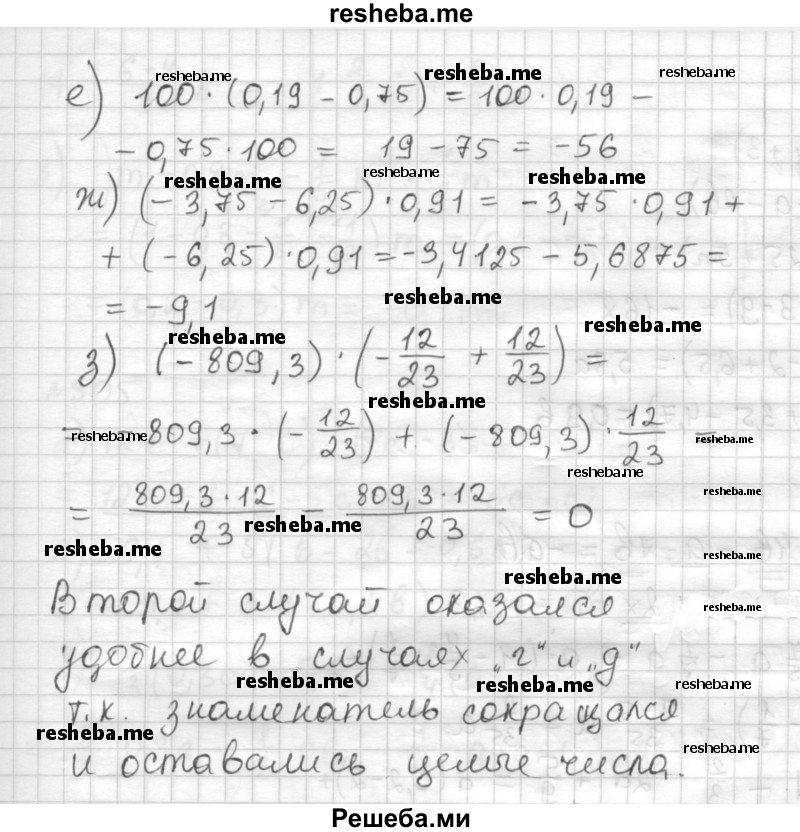 resheba.me
resheba.me resheba.me resheba.me
е) 100 · (0,19 − 0,75) = 100 · 0,19 −
− 0,75 · 100 = 19 − 75 = −56
resheba.me resheba.me resheba.me
ж) (− 3,75 − 6,25) · 0,91 = −3,75 · 0,91 +
+ (−6,25) · 0,91 = −3,4125 − 5,6875 =
resheba.me
= −9,1
resheba.me resheba.me
з) (−809,3) · (−12/23 + 12/23) =
resheba.me
resheba.me −809,3 · (−12/23) + (−809,3) · 12/23 = resheba.me
resheba.me
= 809,3·12/23 − 809,3·12/23 = 0 resheba.me
resheba.me
resheba.me resheba.me
resheba.me
Второй случай оказался resheba.me
удобнее в случаях „г“ и „д“
resheba.me resheba.me resheba.me
т.к. знаменатель сокращался
resheba.me resheba.me
и оставались целые числа.
Решеба.ми